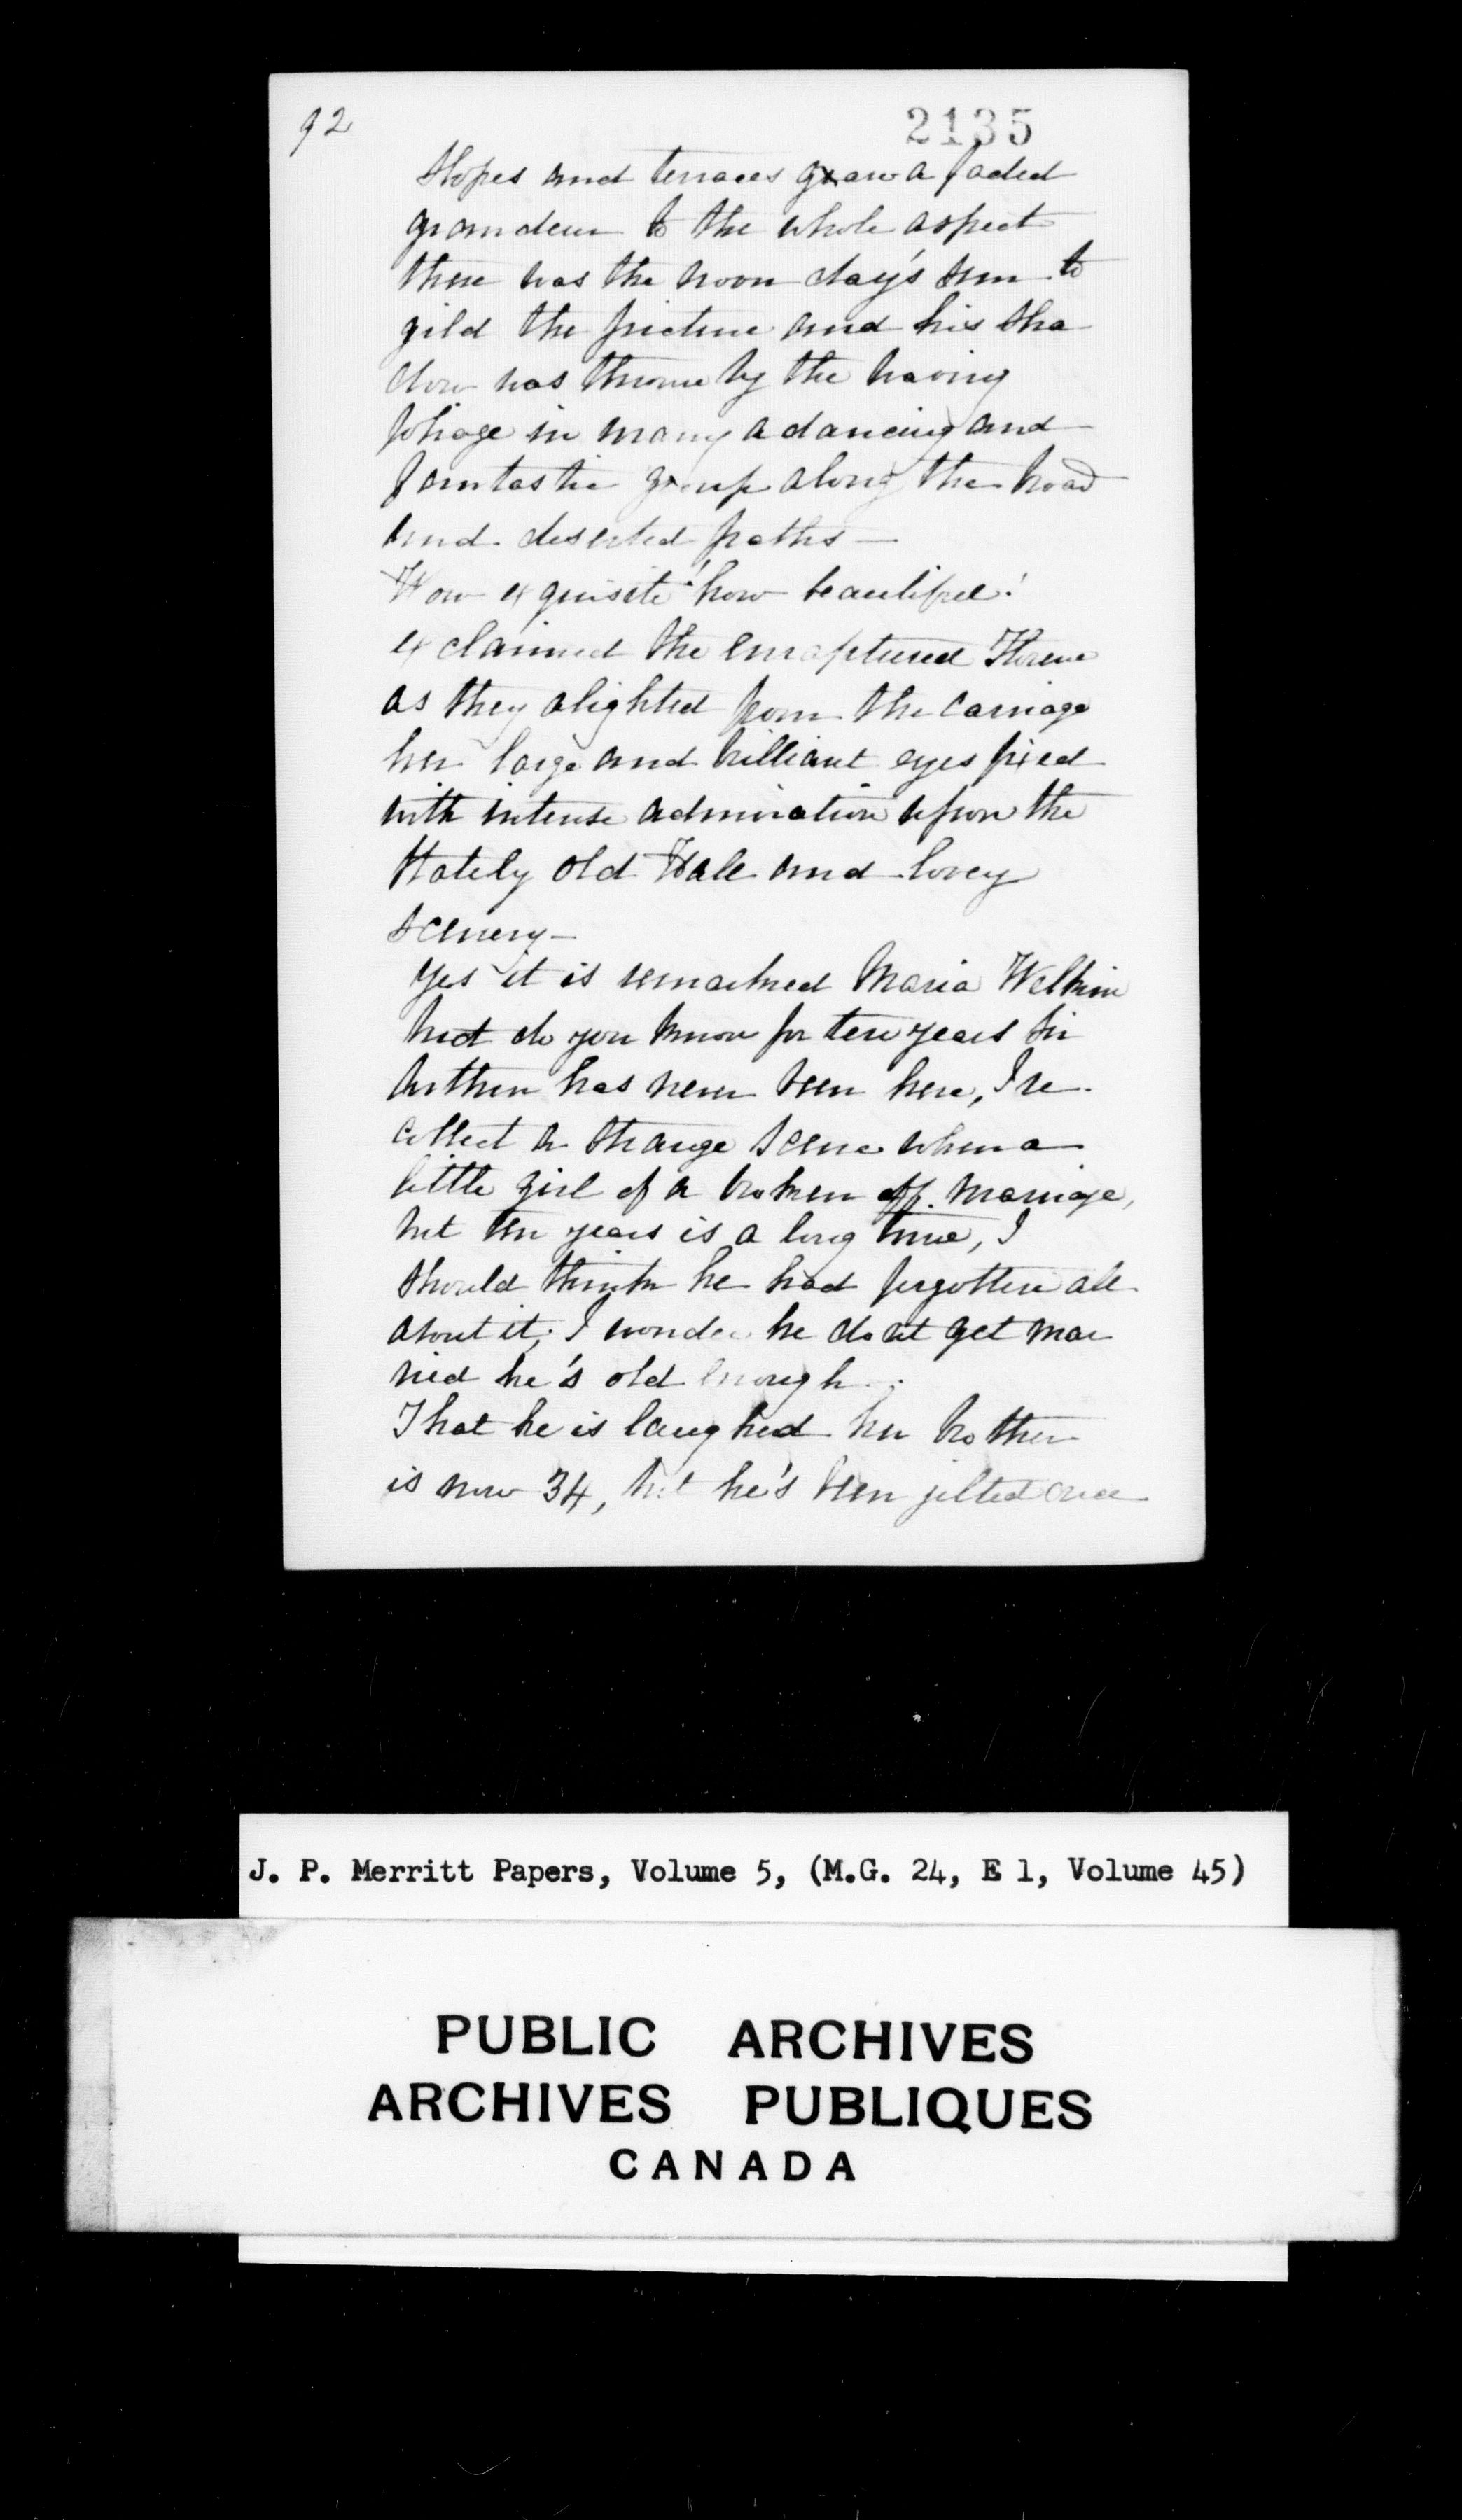 92
2135
slopes and terraces gave a faded
grandeur to the whole aspect
there was the noon day's sun to
gild the picture and his sha
dow was throne by the waving
foliage in many a dancing and
fantastic group along the broad
and deserted paths —
How exquisite! how beautiful!
exclaimed the enraptured Florene
as they alighted from the carriage
her large and brilliant eyes fixed
with intense admiration upon the
stately old Hall and lovey
scenery —
Yes it is remarked Maria Welkim
but do you know for ten years Sir
Arthur has never been here, I re
collect a strange scene when a
little girl of a broken off marriage,
but ten years is a long time, I
should think he had forgotten all
about it, I wonder he dont get mar
ried he's old enough.
That he is laughed her brother
is now 34, but he's been jilted once
J. P. Merritt Papers, Volume 5, (M.G. 24, E 1, Volume 45)
PUBLIC ARCHIVES
ARCHIVES PUBLIQUES
CANADA